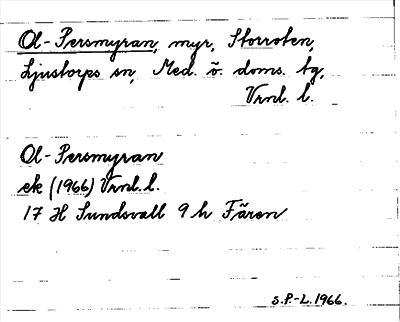 Ol-Persmyran, myr, Storroten,
Ljustorps sn, Med. ö. doms. tg,
Vrnl. l.
Ol-Persmyran
ek (1966) Vrnl. l.
17 H Sundsvall 9 h Fären
S.P.-L. 1966.